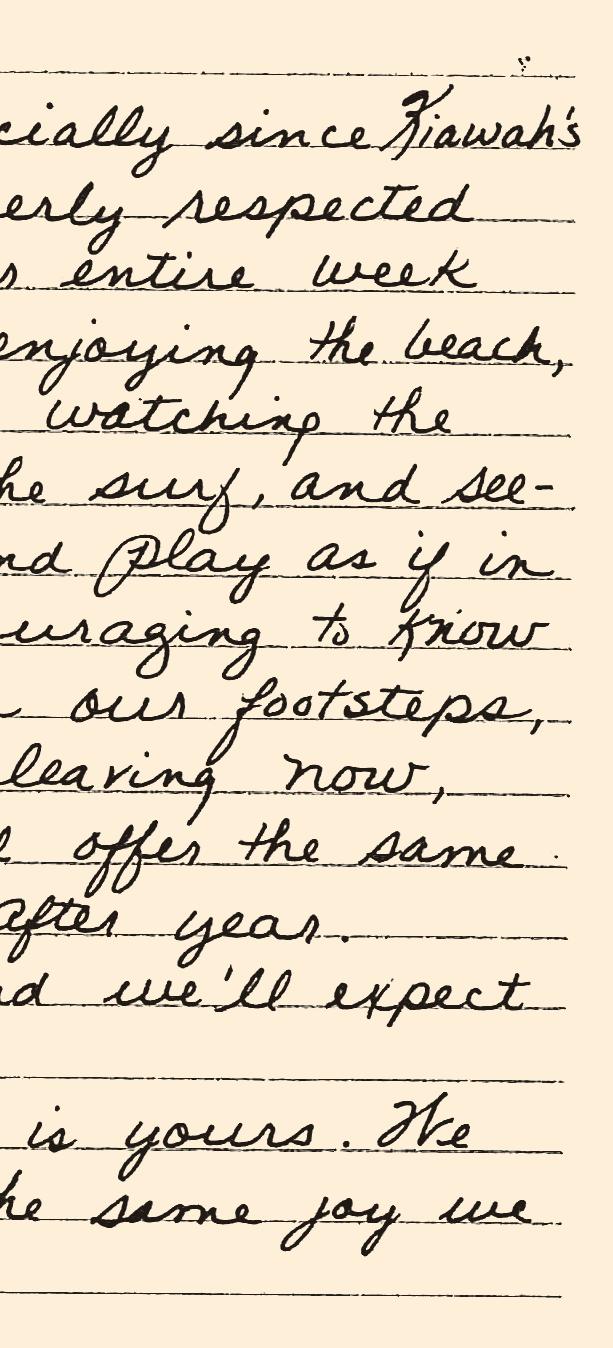 cially since Kiawah's
erly respected
s entire week
enjoying the beach,
watching the
he surf, and see-
nd play as if in
uraging to know
our footsteps,
leaving now,
offer the same
after year.
nd we'll expect
is yours. We
he same joy we